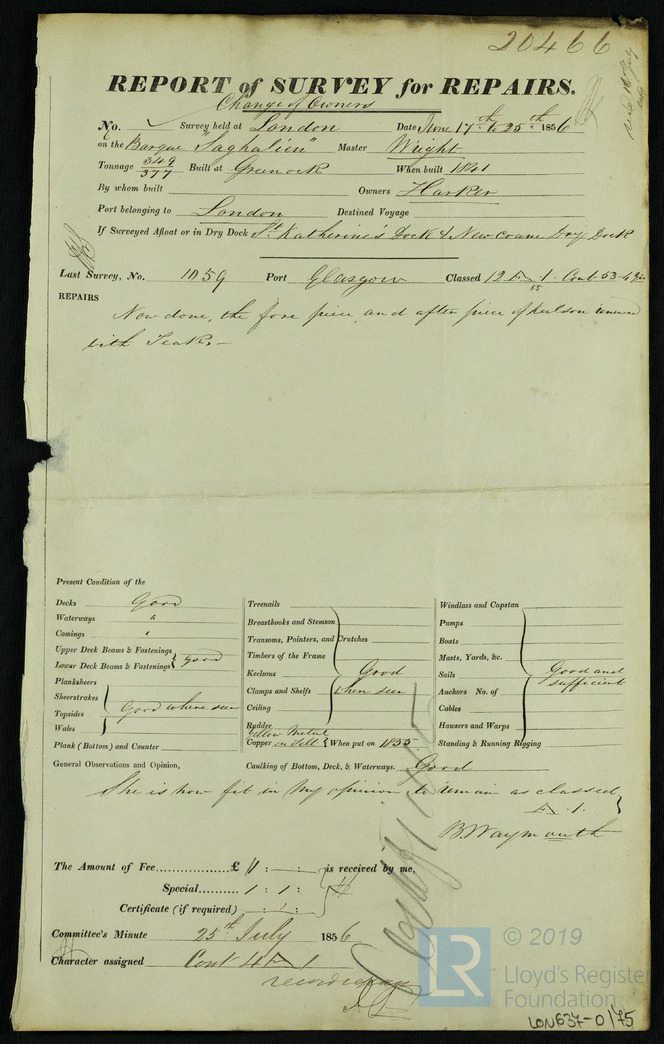 20466
REPORT of SURVEY for REPAIRS.
Change of Owners
No. Survey held at London Date June 17th to 25th 1856
on the Barque "Saghalien" Master Wright
Tonnage 349/377 Built at Greenock When built 1841
By whom built Owners Harker
Port belonging to London Destined Voyage
If Surveyed Afloat or in Dry Dock St. Katherine's Dock & New Crane Dry Dock
Last Survey, No. 1059 Port Glasgow Classed 12 1. Cont 53-4
55
REPAIRS
Now done, the fore piece, and after piece of keelson
with Teak,—
Present Condition of the
Decks Good
Waterways "
Comings "
Upper Deck Beams & Fastenings
Lower Deck Beams & Fastenings } good
Planksheers
Sheerstrakes
Topsides } Good where seen
Wales
Plank (Bottom) and Counter
Treenails
Breasthooks and Stemson
Transoms, Pointers, and Crutches
Timbers of the Frame
Keelsons Good
Clamps and Shelfs when seen
Ceiling
Rudder
Yellow Metal
Copper on Felt { When put on 1855
Windlass and Capstan
Pumps
Boats
Masts, Yards, &c.
Sails Good and
Anchors No. of sufficient
Cables
Hausers and Warps
Standing & Running Rigging
General Observations and Opinion, Caulking of Bottom, Deck, & Waterways. Good
She is now fit in my opinion to remain as classed
1.
B. Waymouth
The Amount of Fee.................£ : — : is received by me,
Special.......... 1 : 1 :
Certificate (if required) : 2 :
Committee's Minute 25th July 1856
Character assigned Cont 4 1
© 2019
LR
Lloyd's Register
Foundation
LON637-0175